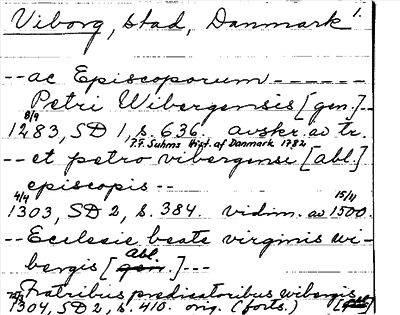 Viborg, stad, Danmark 1.
-- ac Episcoporum ------
Petri Wibergensis [gen.] --
8/9
1283, SD 1, s. 636. avskr. av tr.
P.F. Suhms Hist. af Danmark 1782
-- et petro vibergensi [abl.]
episcopis --
4/4 15/11
1303, SD 2, s. 384. vidim. av 1500.
-- Ecclesie beate virginis wi-
abl.
bergis [gen.] ---
-- Fratribus predicatoribus wibergis
1304, SD 2, s. 410. orig. (forts.)